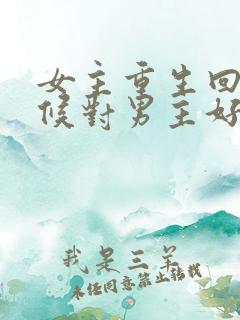 女主重生回
候对男主好
我是三羊
未经同意禁止转载